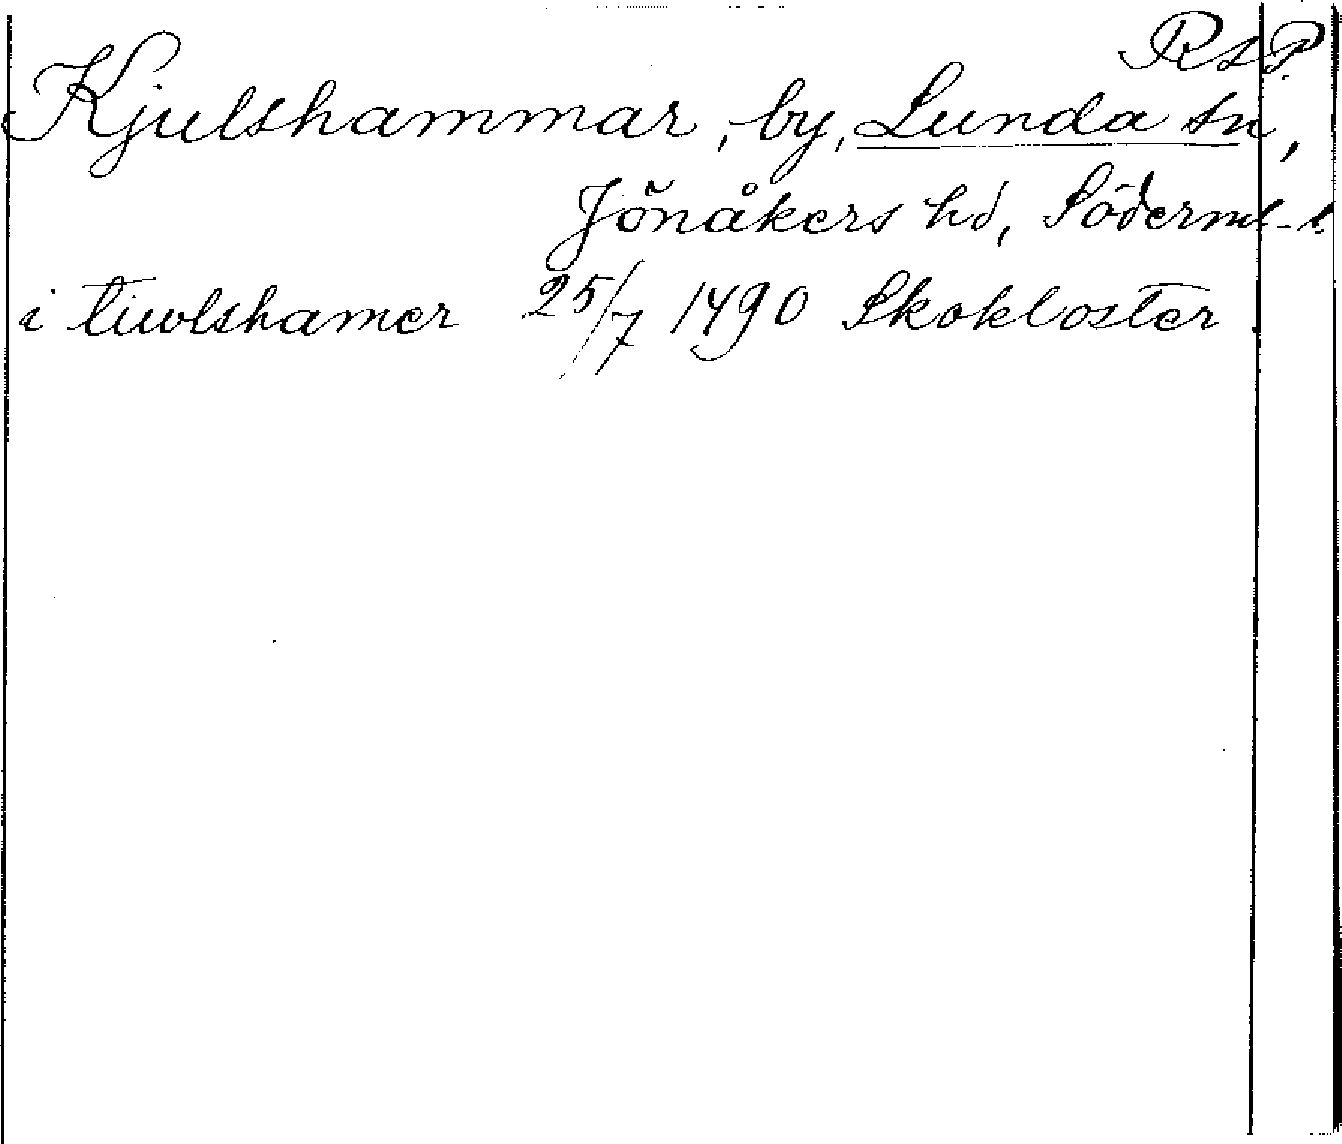 RAP.
Kjulshammar, by, Lunda sn,
Jönåkers hd, Söderml. l.
i tiwlshamer 25/7 1490 Skokloster